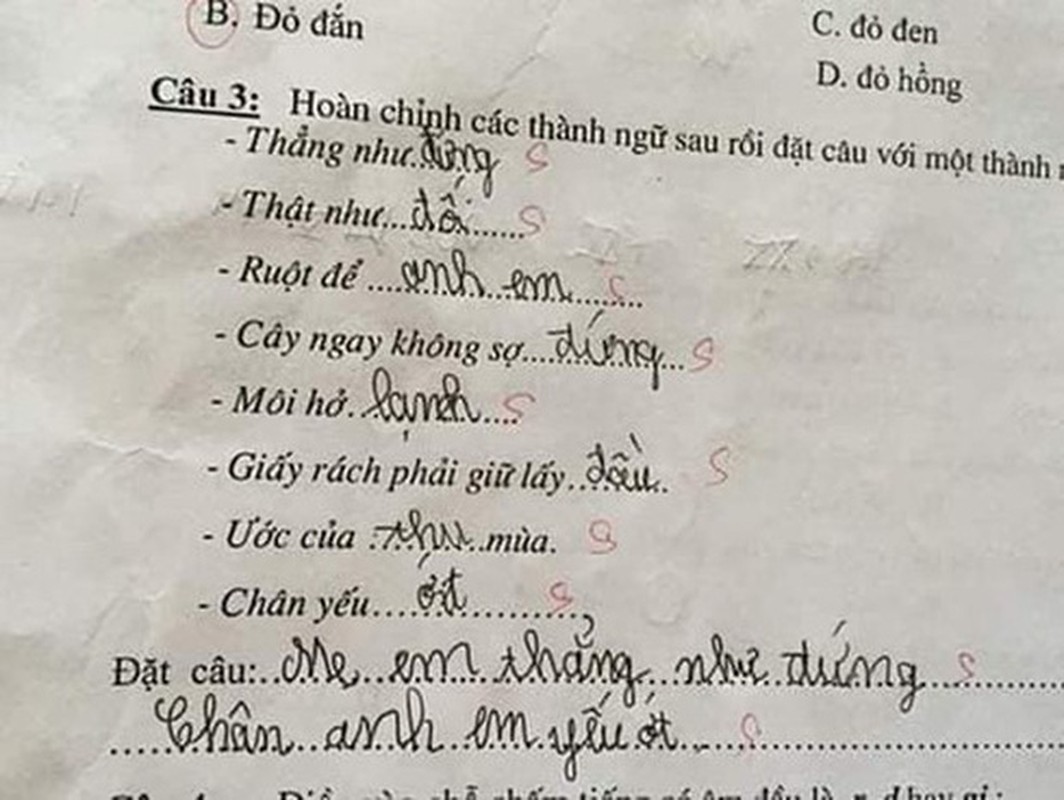 B. Đỏ đắn
C. đỏ đen
D. đỏ hồng
Câu 3: Hoàn chỉnh các thành ngữ sau rồi đặt câu với một thành
- Thẳng như..đứng S
- Thật như...dối......S
- Ruột để ....anh em....... S
- Cây ngay không sợ....đứng... S
- Môi hở..lạnh.... S
- Giấy rách phải giữ lấy..đầu.. S
- Ước của ..thu..mùa. S
- Chân yếu....ớt.......... S
Đặt câu:..Mẹ em thẳng như đứng S
Chân anh em yếu ớt S